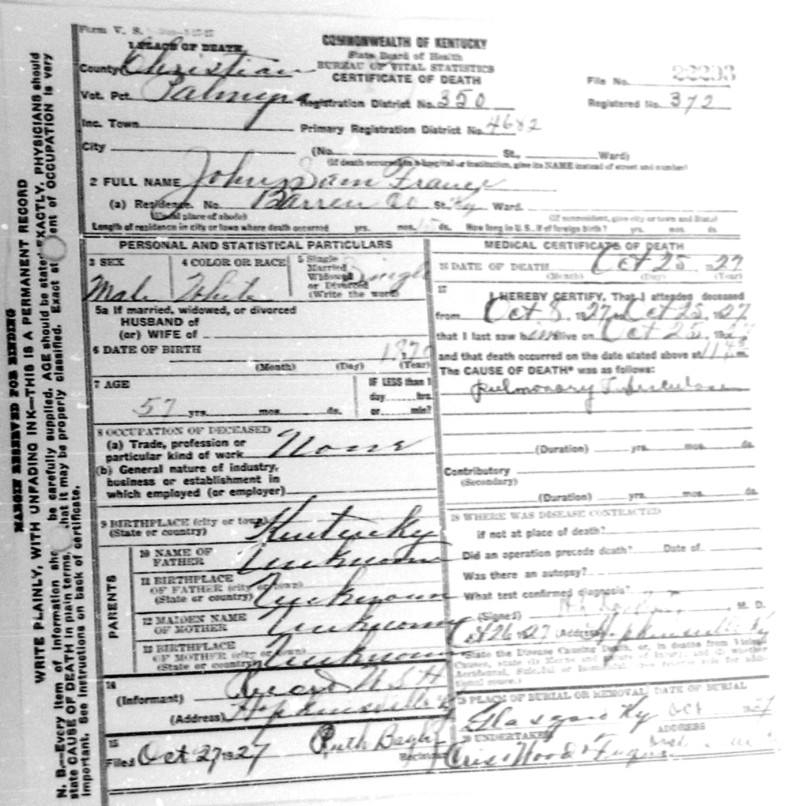 Form V. S.
1 PLACE OF DEATH
County Christian
Vot. Pct. Palmyra
Inc. Town
City
COMMONWEALTH OF KENTUCKY
State Board of Health
BUREAU OF VITAL STATISTICS
CERTIFICATE OF DEATH
Registration District No. 350
Primary Registration District No. 4682
File No.
Registered No. 372
(No. St., Ward)
(If death occurred in a hospital or institution, give its NAME instead of street and number)
2 FULL NAME John Sam
(a) Residence. No. Barren Co St. Ky Ward.
(Usual place of abode) (If nonresident, give city or town and State)
Length of residence in city or town where death occurred yrs. mos. ds. How long in U.S., if of foreign birth? yrs. mos. ds.
PERSONAL AND STATISTICAL PARTICULARS
3 SEX
Male
4 COLOR OR RACE
White
5 Single
Married
Widowed
or Divorced
(Write the word)
Single
5a If married, widowed, or divorced
HUSBAND of
(or) WIFE of
6 DATE OF BIRTH 1870
(Month) (Day) (Year)
7 AGE
57 yrs. mos. ds.
IF LESS than 1
day hrs.
or min?
8 OCCUPATION OF DECEASED
(a) Trade, profession or
particular kind of work None
(b) General nature of industry,
business or establishment in
which employed (or employer)
9 BIRTHPLACE (city or town)
(State or country) Kentucky
PARENTS
10 NAME OF
FATHER Unknown
11 BIRTHPLACE
OF FATHER (city or town)
(State or country) Unknown
12 MAIDEN NAME
OF MOTHER Unknown
13 BIRTHPLACE
OF MOTHER (city or town)
(State or country) Unknown
14
(Informant) Record W S H
(Address) Hopkinsville Ky
15
Filed Oct 27 1927 Ruth Registrar
MEDICAL CERTIFICATE OF DEATH
16 DATE OF DEATH Oct 25 1927
(Month) (Day) (Year)
17
I HEREBY CERTIFY, That I attended deceased
from Oct 8 1927 Oct 25 1927
that I last saw him alive on Oct 25 19
and that death occurred on the date stated above at m.
The CAUSE OF DEATH* was as follows:
Pulmonary Tuberculosis
(Duration) yrs. mos. ds.
Contributory
(Secondary)
(Duration) yrs. mos. ds.
18 WHERE WAS DISEASE CONTRACTED
if not at place of death?
Did an operation precede death? Date of
Was there an autopsy?
What test confirmed diagnosis?
(Signed) M. D.
Oct 26 1927 (Address) Hopkinsville Ky
19 PLACE OF BURIAL OR REMOVAL DATE OF BURIAL
Glasgow Ky Oct 1927
20 UNDERTAKER ADDRESS
MARGIN RESERVED FOR BINDING
WRITE PLAINLY, WITH UNFADING INK—THIS IS A PERMANENT RECORD
N. B.—Every item of information should be carefully supplied. AGE should be stated EXACTLY. PHYSICIANS should
state CAUSE OF DEATH in plain terms, that it may be properly classified. Exact statement of OCCUPATION is very
important. See instructions on back of certificate.